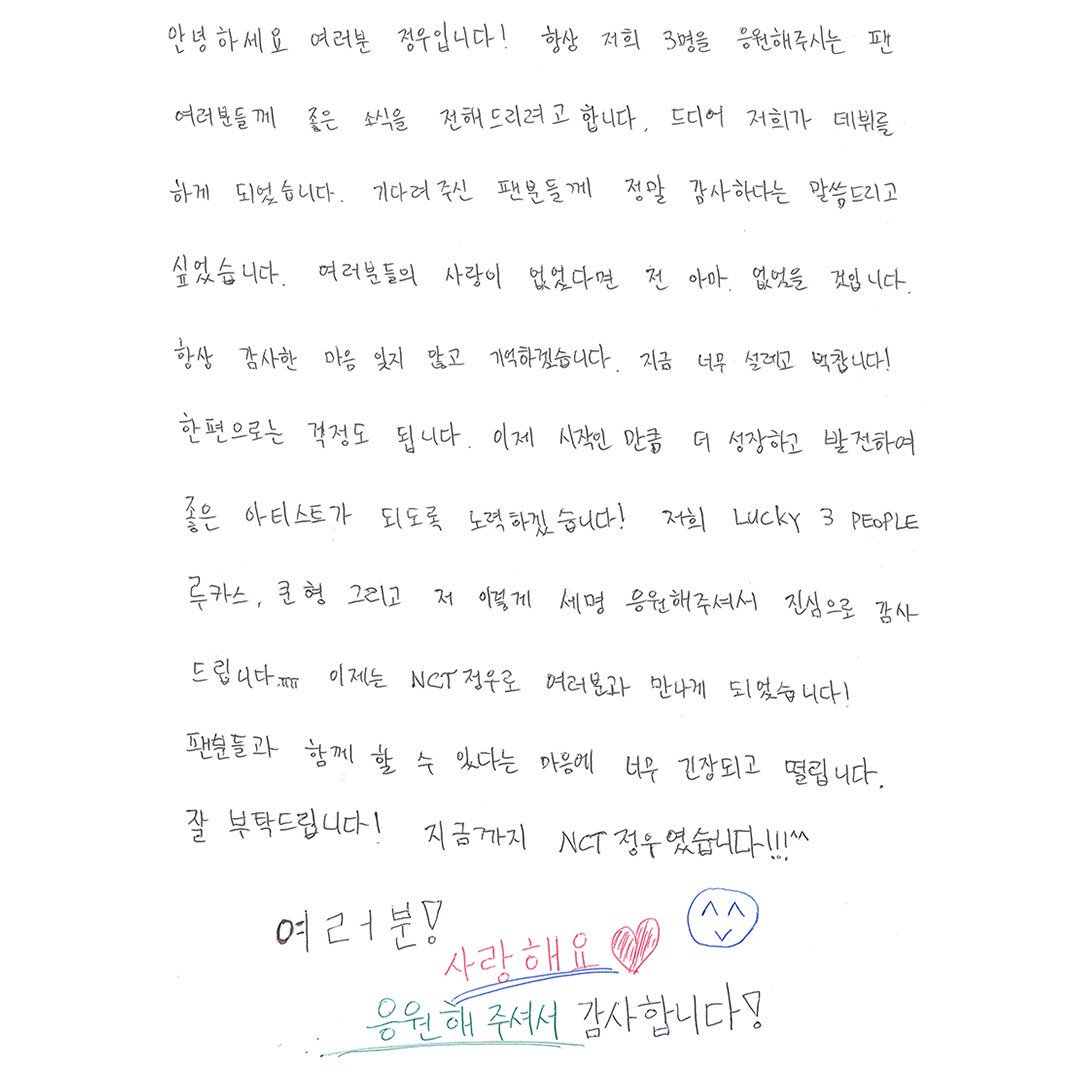 안녕하세요 여러분 정우입니다! 항상 저희 3명을 응원해주시는 팬
여러분들께 좋은 소식을 전해드리려고 합니다. 드디어 저희가 데뷔를
하게 되었습니다. 기다려주신 팬분들께 정말 감사하다는 말씀드리고
싶었습니다. 여러분들의 사랑이 없었다면 전 아마 없었을 것입니다.
항상 감사한 마음 잊지 않고 기억하겠습니다. 지금 너무 설레고 벅찹니다!
한편으로는 걱정도 됩니다. 이제 시작인 만큼 더 성장하고 발전하여
좋은 아티스트가 되도록 노력하겠습니다! 저희 LUCKY 3 PEOPLE
루카스, 쿤형 그리고 저 이렇게 세명 응원해주셔서 진심으로 감사
드립니다ㅠㅠ 이제는 NCT정우로 여러분과 만나게 되었습니다!
팬분들과 함께 할 수 있다는 마음에 너무 긴장되고 떨립니다.
잘 부탁드립니다! 지금까지 NCT 정우였습니다!!!^^
여러분!
사랑해요
응원해 주셔서 감사합니다!